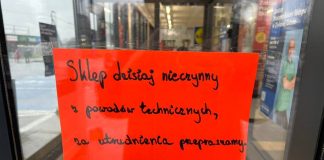 Sklep dzisiaj nieczynny
z powodów technicznych,
za utrudnienia przepraszamy